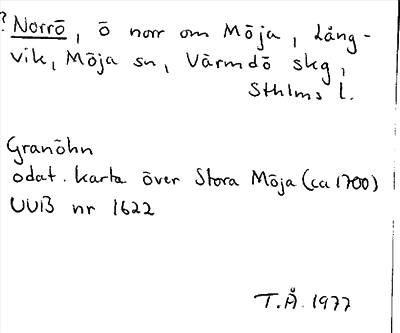 ? Norrö, ö norr om Möja, Lång-
vik, Möja sn, Värmdö skg,
Sthlms l.
Granöhn
odat. karta över Stora Möja (ca 1700)
UUB nr 1622
T.Å. 1977